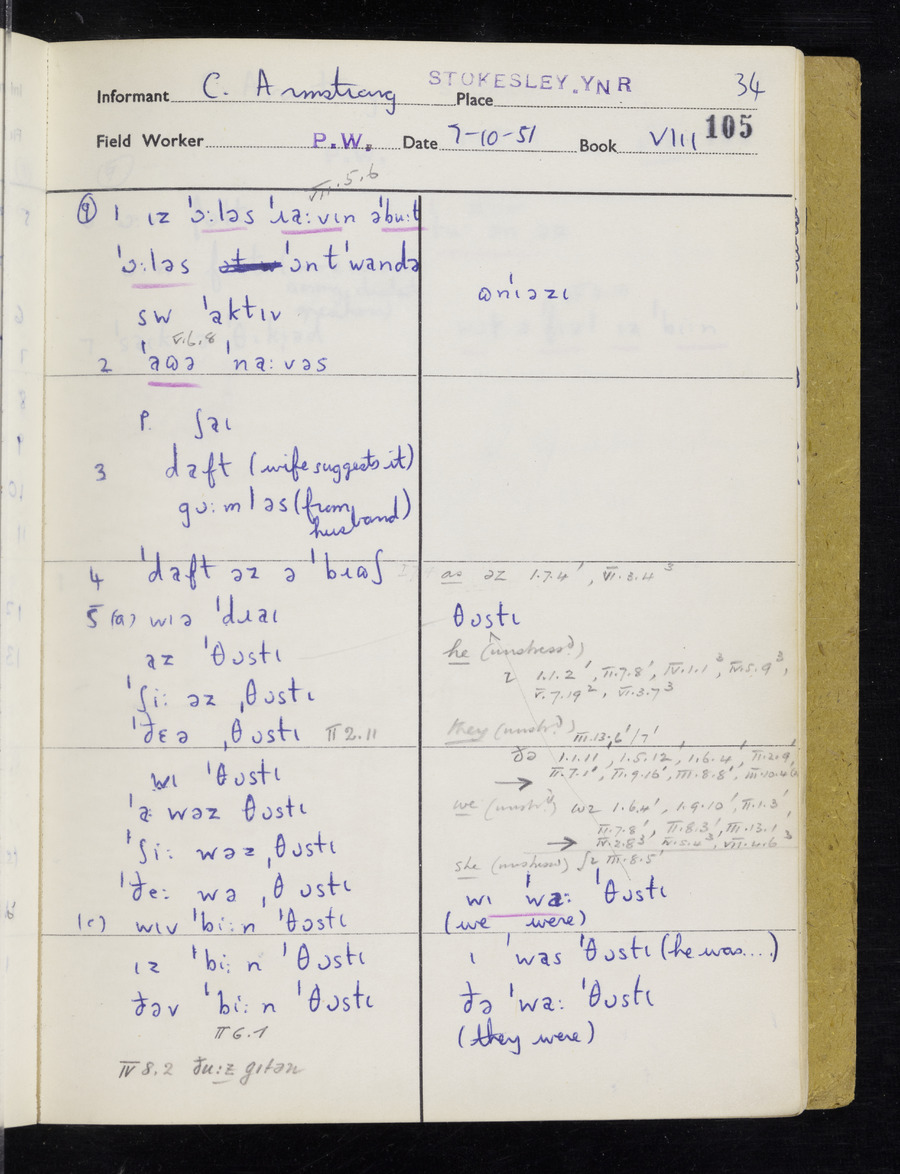 STOKESLEY. YNR 34
Informant C. Armstrong Place
105
Field Worker P.W. Date 7-10-51 Book VIII
VII.5.6
9 1 ɪz 'ɔ:ləs 'ɹa:vɪn ə'bu:t
'ɔ:ləs 'ɔnt'wandə
sw 'aktɪv
V.6.8
2 'aʊə 'na:vəs
P. ʃaɪ
3 daft (wife suggests it)
gɔ:mləs (from
husband)
4 'daft əz ə 'bɪʊʃ
5 (a) wɪə 'dɹaɪ
az 'θɔstɪ
'ʃi: əz ˌθɔstɪ
'ðɛə ˌθɔstɪ II 2.11
wɪ 'θɔstɪ
'a: wəz θɔstɪ
'ʃi: wəz ˌθɔstɪ
'ðe: wə ˌθɔstɪ
(c) wɪv 'bi:n 'θɔstɪ
ɪz 'bi:n 'θɔstɪ
ðəv 'bi:n 'θɔstɪ
II 6.1
IV 8.2 ðu:z gɪtən
ʊn'ɪəzɪ
as əz 1.7.4', VI.3.4³
θɔstɪ
he (unstress?)
ɪ 1.1.2', II.7.8', IV.1.1³, IV.5.9³,
V.7.19², VI.3.7³
they (unstr.?) III.13.6'/7'
ðə 1.1.11', 1.5.12', 1.6.4', II.2.9',
II.7.1', II.9.16', III.8.8', III.10.4
we (unstr.?) wɪ 1.6.4', 1.9.10', II.1.3',
II.7.8', II.8.3', III.13.1'
IV.2.8³ IV.5.4³, VII.4.6³
she (unstress) ʃɪ III.8.5'
wɪ 'wa: 'θɔstɪ
(we were)
ɪ 'was 'θɔstɪ (he was....)
ðə 'wa: 'θɔstɪ
(they were)